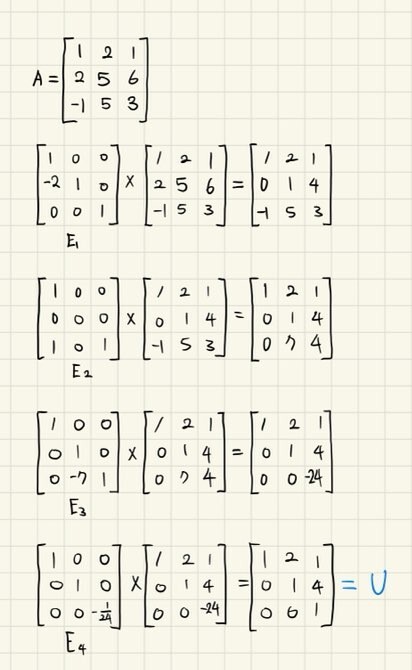 A = [1 2 1
2 5 6
-1 5 3]
[1 0 0
-2 1 0
0 0 1] × [1 2 1
2 5 6
-1 5 3] = [1 2 1
0 1 4
-1 5 3]
E₁
[1 0 0
0 0 0
1 0 1] × [1 2 1
0 1 4
-1 5 3] = [1 2 1
0 1 4
0 7 4]
E₂
[1 0 0
0 1 0
0 -7 1] × [1 2 1
0 1 4
0 7 4] = [1 2 1
0 1 4
0 0 -24]
E₃
[1 0 0
0 1 0
0 0 -1/24] × [1 2 1
0 1 4
0 0 -24] = [1 2 1
0 1 4
0 0 1] = U
E₄